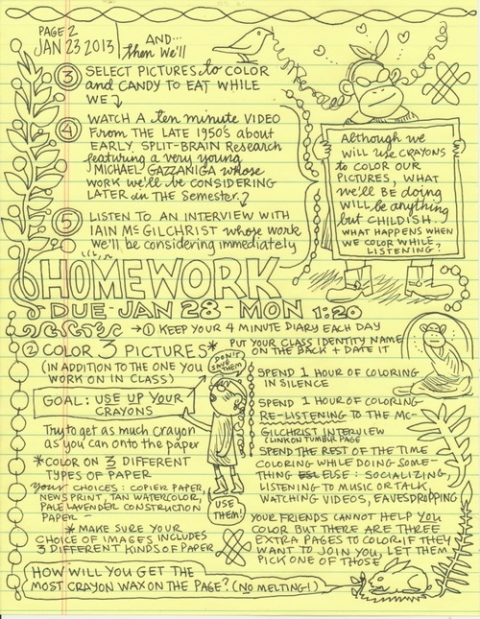 PAGE 2
JAN 23 2013
AND...
then We'll
③ SELECT PICTURES to COLOR
and CANDY TO EAT WHILE
WE
④ WATCH A ten minute VIDEO
From THE LATE 1950's about
EARLY SPLIT-BRAIN Research
featuring a very young
MICHAEL GAZZANIGA whose
WORK we'll be CONSIDERING
LATER in THE Semester.
⑤ LISTEN TO AN INTERVIEW WITH
IAIN McGILCHRIST whose work
We'll be considering immediately
Although we
WILL use CRAYONS
to COLOR OUR
PICTURES, WHAT
we'll BE doing
WILL be anything
but CHILDISH.
WHAT HAPPENS WHEN
WE COLOR WHILE
LISTENING?
HOMEWORK
DUE-JAN 28-MON 1:20
→① KEEP YOUR 4 MINUTE DIARY EACH DAY
PUT YOUR CLASS IDENTITY NAME
ON THE BACK + DATE IT
② COLOR 3 PICTURES*
(IN ADDITION TO THE ONE YOU
WORK ON IN CLASS)
GOAL: USE UP YOUR
CRAYONS
Try to get as much crayon
as you can onto the paper
*COLOR ON 3 DIFFERENT
TYPES OF PAPER
Your CHOICES: COPIER PAPER,
NEWSPRINT, TAN WATERCOLOR,
PALE LAVENDER CONSTRUCTION
PAPER -
* MAKE SURE YOUR
CHOICE OF IMAGES INCLUDES
3 DIFFERENT KINDS OF PAPER
DON'T
SAVE THEM
USE
THEM!
SPEND 1 HOUR OF COLORING
IN SILENCE
SPEND 1 HOUR OF COLORING
RE-LISTENING TO THE MC-
GILCHRIST INTERVIEW
(LINK ON TUMBLR PAGE
SPEND THE REST OF THE TIME
COLORING WHILE DOING SOME-
THING ELSE: SOCIALIZING,
LISTENING TO MUSIC OR TALK,
WATCHING VIDEOS, EAVESDROPPING
YOUR FRIENDS CANNOT HELP YOU
COLOR BUT THERE ARE THREE
EXTRA PAGES TO COLOR. IF THEY
WANT TO JOIN YOU, LET THEM
PICK ONE OF THOSE
HOW WILL YOU GET THE
MOST CRAYON WAX ON THE PAGE? (NO MELTING!)